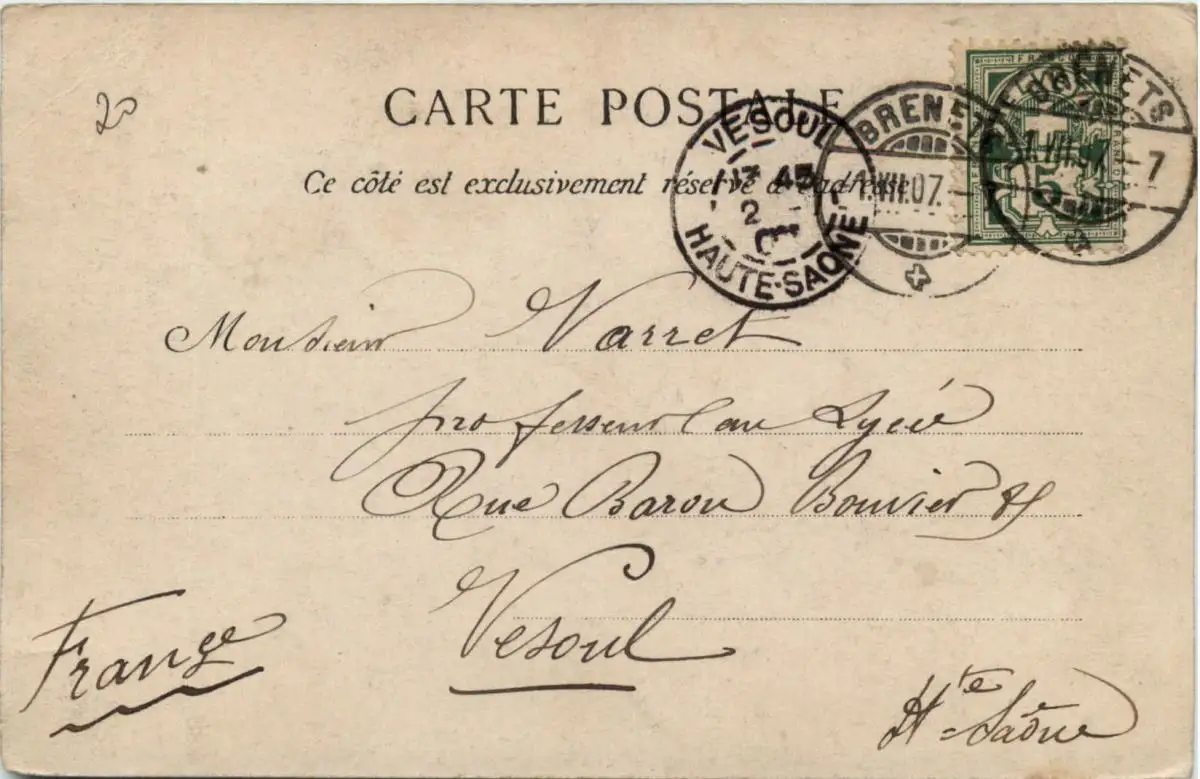 20
CARTE POSTALE
Ce côté est exclusivement réservé à l'adresse
VESOUL
2
HAUTE-SAONE
BRENETS
1.VII.07.
BRENETS
1.VII.07.-7
5
Monsieur Varret
professeur au Lycée
Rue Baron Bouvier
Vesoul
France
Hte-Saône